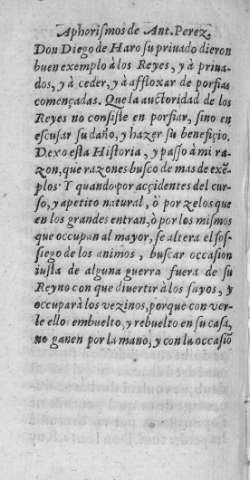 Aphorismos de Ant. Perez.
Don Diego de Haro su priuado dieron
buen exemplo à los Reyes, y à priua-
dos, y à ceder, y à affloxar de porfias
començadas. Que la auctoridad de los
Reyes no consiste en porfiar, sino en
escusar su daño, y hazer su beneficio.
Dexo esta Historia, y passo à mi ra-
zon, que razones busco de mas de exẽ-
plos. Y quando por acçidentes del cur-
so, y apetito natural, ò por zelos que
en los grandes entran, ò por los mismos
que occupan al mayor, se altera el sos-
siego de los animos, buscar occasion
iusta de alguna guerra fuera de su
Reyno con que diuertir à los suyos, y
occupar à los vezinos, porque con ver-
le ello embuelto, y rebuelto en su casa,
no ganen por la mano, y con la occasiõ